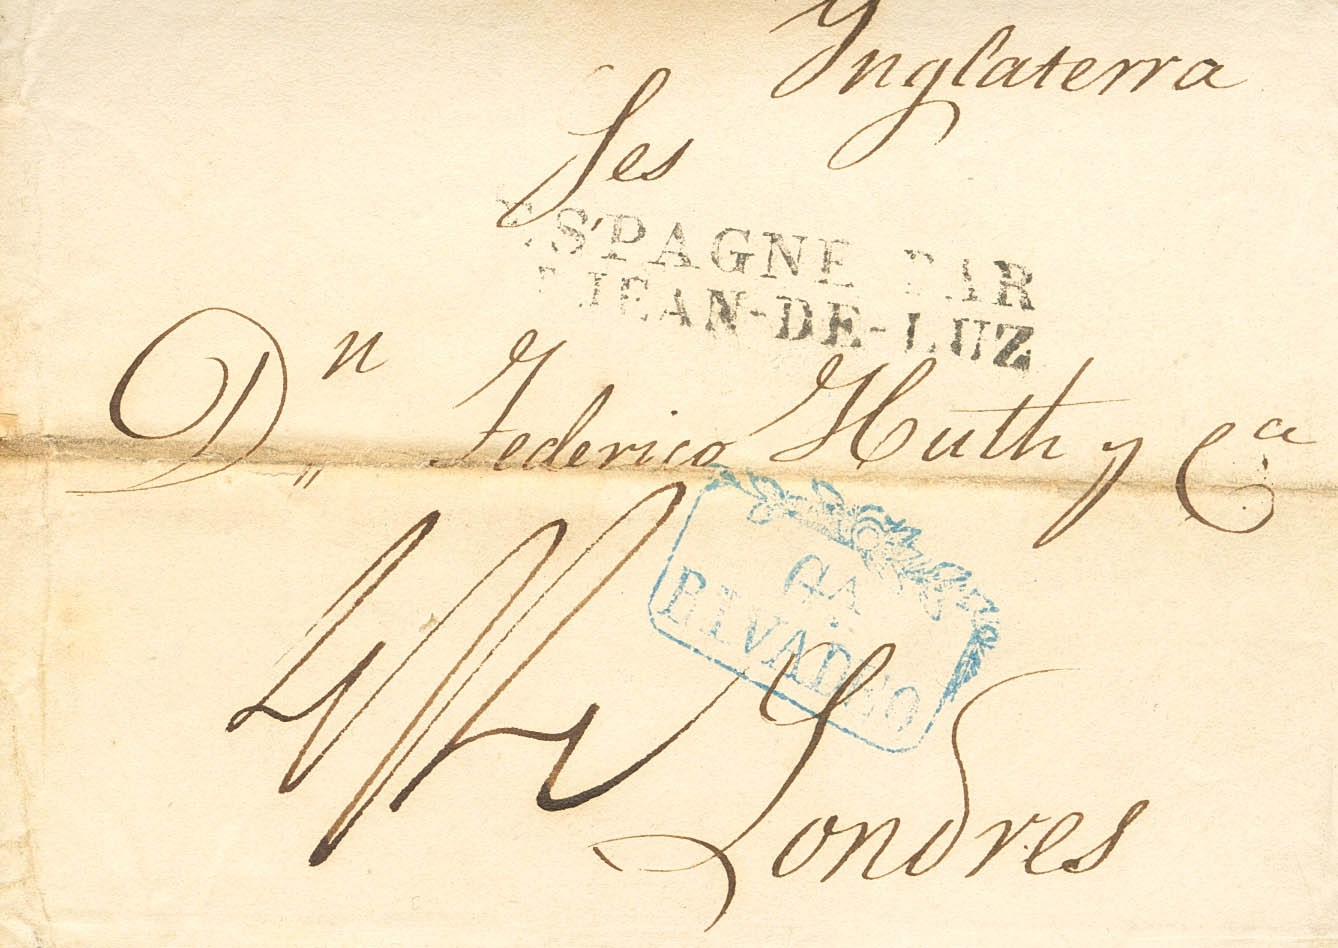 Ynglaterra
Ses
ESPAGNE PAR
JEAN-DE-LUZ
Dn Federico Huth y Ca
GA
RIVADEO
Londres